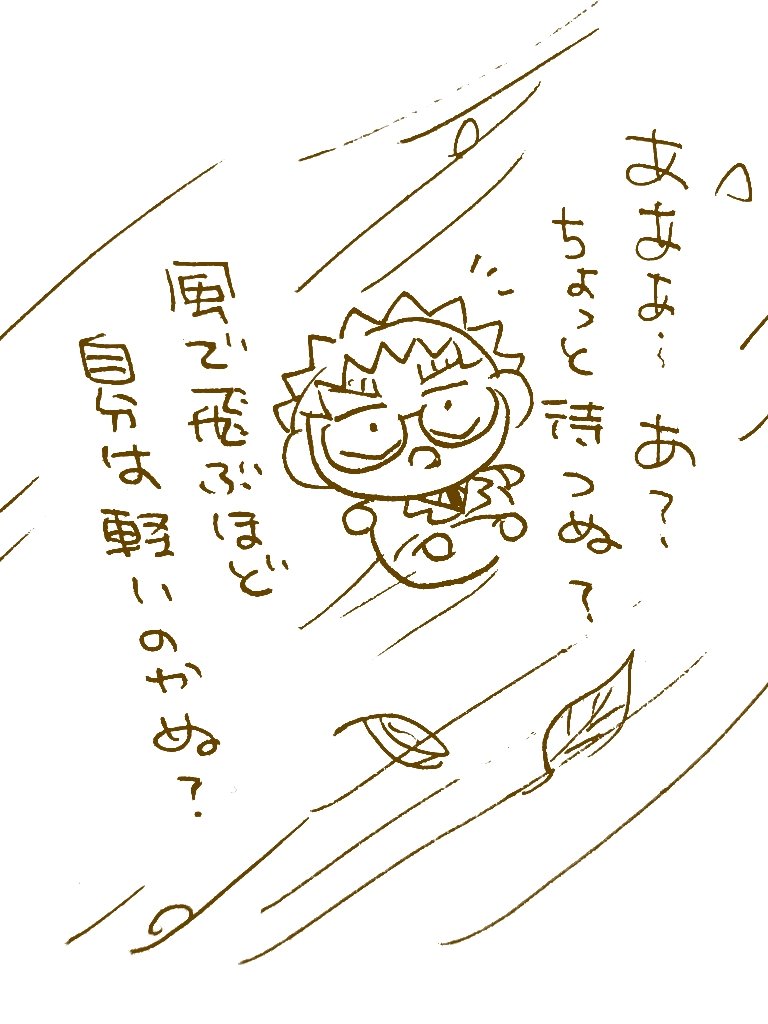 あああ… あ?
ちょっと待つぬ?
風で飛ぶほど
自分は軽いのかぬ?